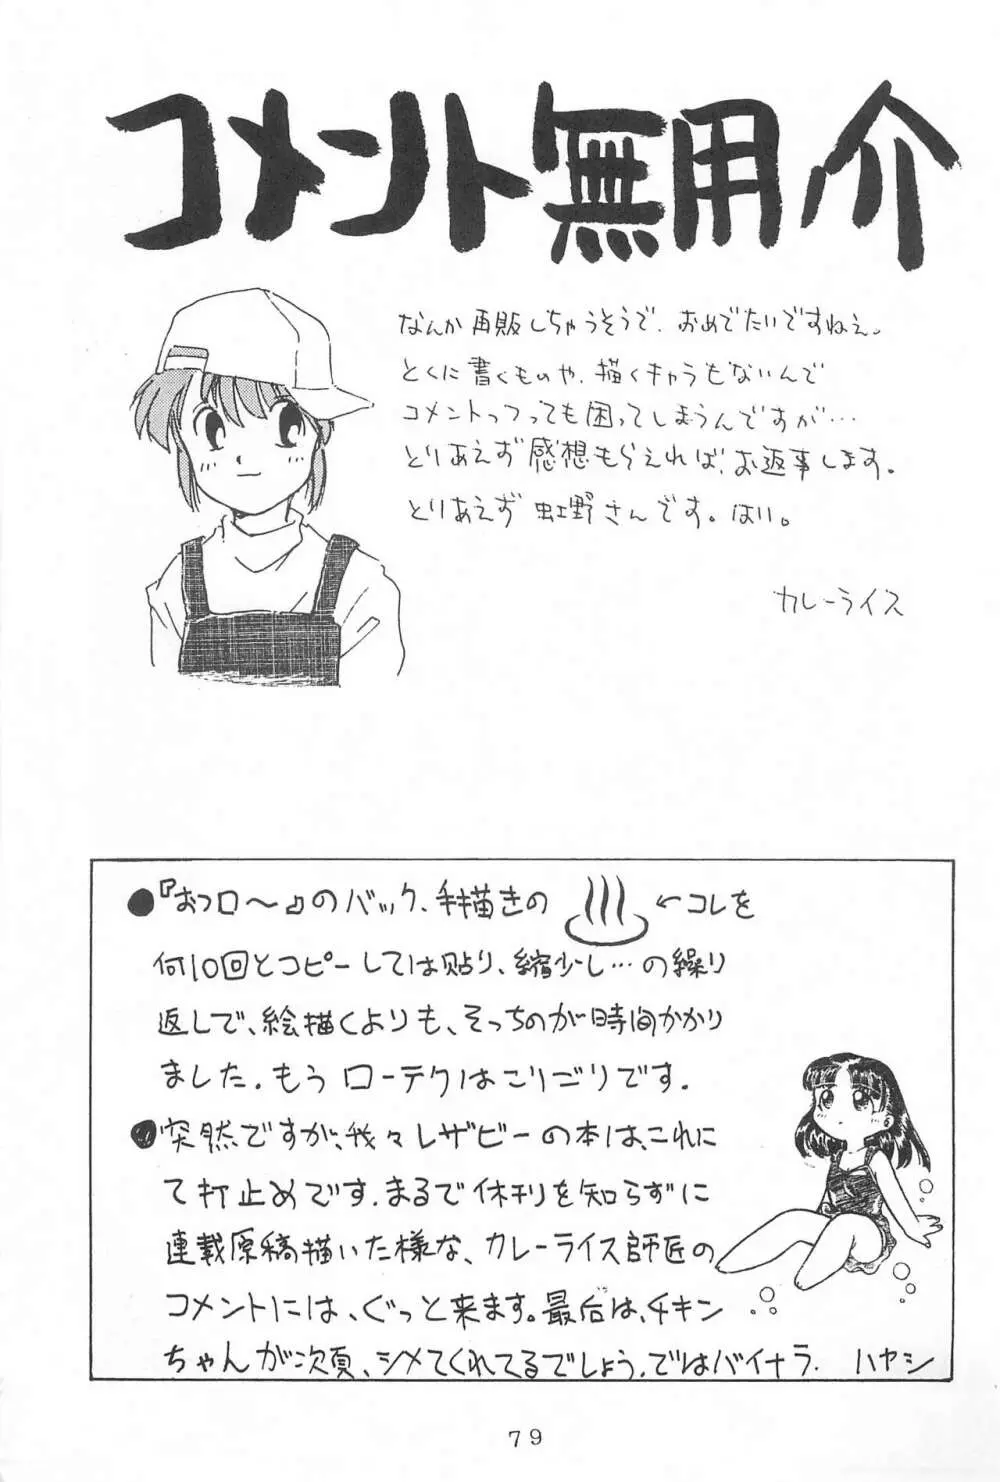 コメント無用ノ介
なんか再販しちゃうそうで、おめでたいですねえ。
とくに書くものや、描くキャラもないんで
コメントっつっても困ってしまうんですが…
とりあえず感想もらえれば、お返事します。
とりあえず虹野さんです。はい。
カレーライス
●『おフロ〜』のバック、手描きの ♨ ←コレを
何10回とコピーしては貼り、縮少し…の繰り
返しで、絵描くよりも、そっちのが時間かかり
ました。もうローテクはこりごりです。
●突然ですが、我々レザビーの本は、これに
て打止めです。まるで休刊を知らずに
連載原稿描いた様な、カレーライス師匠の
コメントには、ぐっと来ます。最后は、チキン
ちゃんが次頁、シメてくれてるでしょう。ではバイナラ. ハヤシ
79